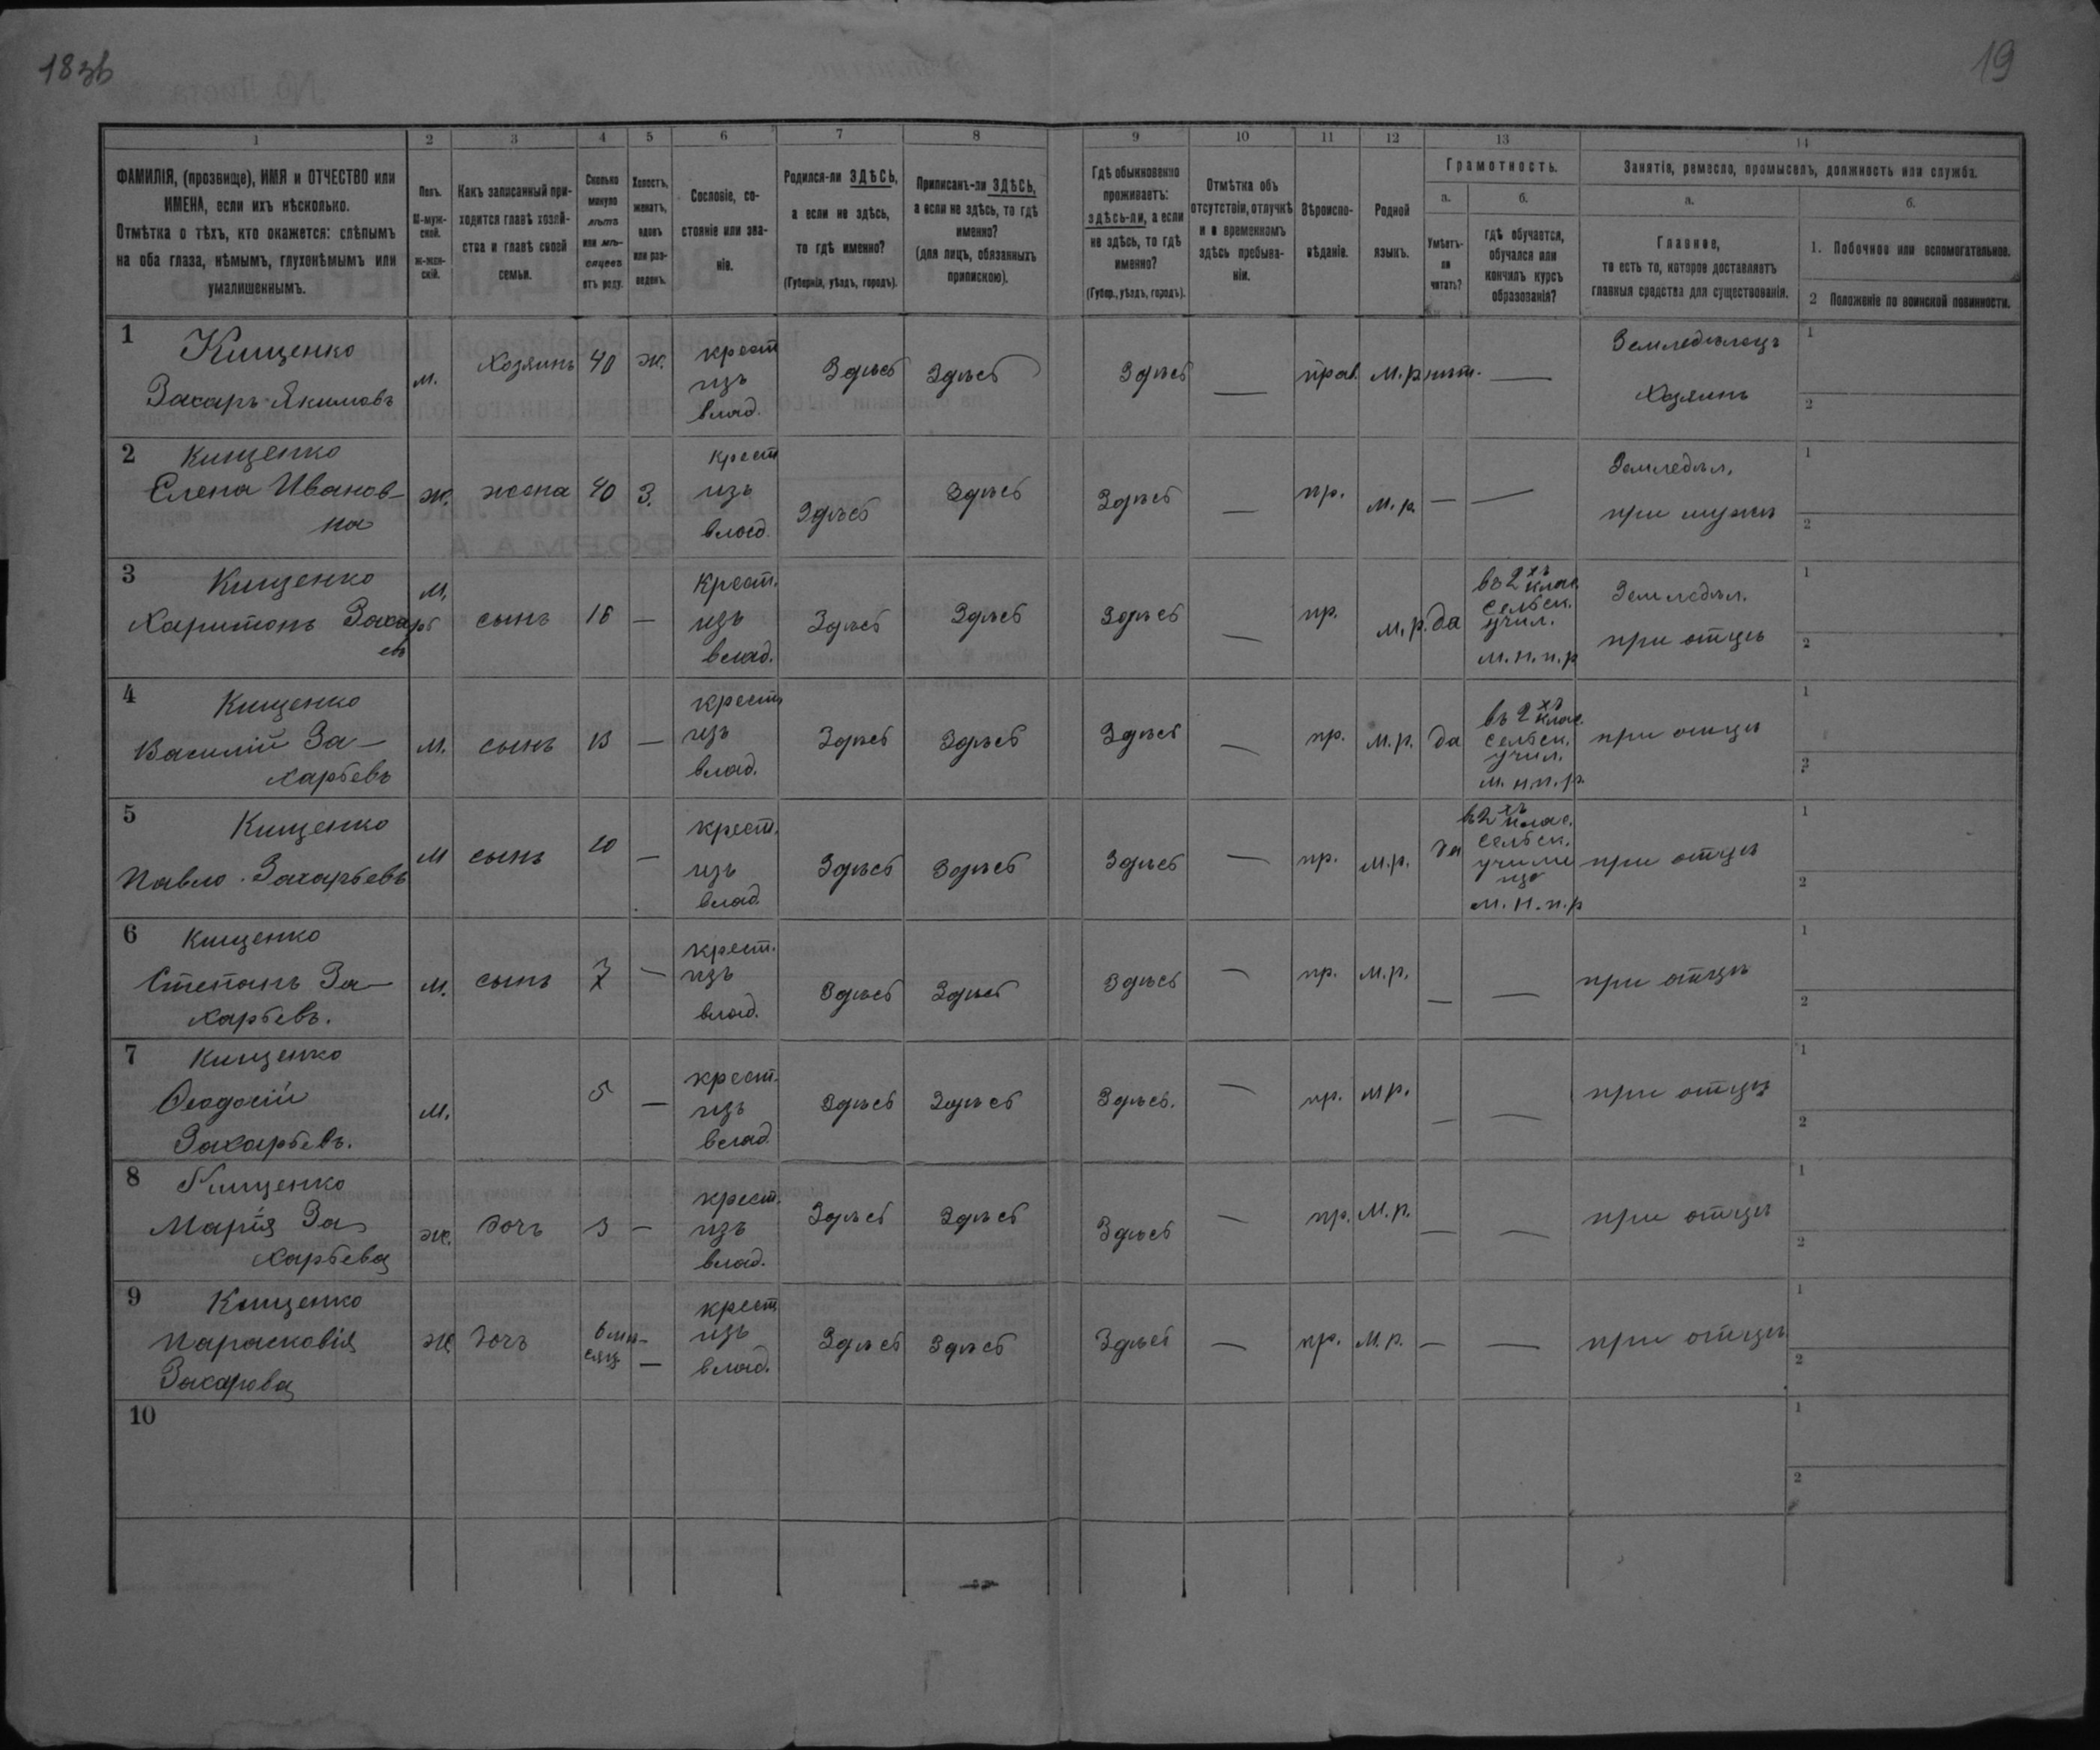 183б
19
1 2 3 4 5 6 7 8 9 10 11 12 13 14
ФАМИЛІЯ, (прозвище), ИМЯ и ОТЧЕСТВО или
ИМЕНА, если ихъ нѣсколько.
Отмѣтка о тѣхъ, кто окажется: слѣпымъ
на оба глаза, нѣмымъ, глухонѣмымъ или
умалишеннымъ.
Полъ.
М-муж-
ской.
ж-жен-
скій.
Какъ записанный при-
ходится главѣ хозяй-
ства и главѣ своей
семьи.
Сколько
минуло
лѣтъ
или мѣ-
сяцевъ
отъ роду.
Холостъ,
женатъ,
вдовъ
или раз-
веденъ.
Сословіе, со-
стояніе или зва-
ніе.
Родился-ли ЗДѢСЬ,
а если не здѣсь,
то гдѣ именно?
(Губернія, уѣздъ, городъ).
Приписанъ-ли ЗДѢСЬ,
а если не здѣсь, то гдѣ
именно?
(для лицъ, обязанныхъ
припискою).
Гдѣ обыкновенно
проживаетъ:
здѣсь-ли, а если
не здѣсь, то гдѣ
именно?
(Губер., уѣздъ, городъ).
Отмѣтка объ
отсутствіи, отлучкѣ
и о временномъ
здѣсь пребыва-
ніи.
Вѣроиспо-
вѣданіе.
Родной
языкъ.
Грамотность.
а.
Умѣетъ-
ли
читать?
б.
гдѣ обучается,
обучался или
кончилъ курсъ
образованія?
Занятія, ремесло, промыселъ, должность или служба.
а.
Главное,
то есть то, которое доставляетъ
главныя средства для существованія.
б.
1. Побочное или вспомогательное.
2 Положеніе по воинской повинности.
1
Кищенко
Захаръ Якимовъ
м.
Хозяинъ
40
ж.
крест
изъ
влад.
Здѣсь
Здѣсь
Здѣсь
—
прав.
м.р.
нѣт.
—
Земледѣлецъ
Хозяинъ
1
2
2
Кищенко
Елена Иванов-
на
ж.
жена
40
З.
крест
изъ
влад.
Здѣсь
Здѣсь
Здѣсь
—
пр.
м.р.
—
—
Земледѣл.
при мужѣ
1
2
3
Кищенко
Харитонъ Захарь
евъ
М.
сынъ
16
—
Крест.
изъ
влад.
Здѣсь
Здѣсь
Здѣсь
—
пр.
м.р.
да
въ 2хъ клас.
сельск.
учил.
м.н.п.р
Земледѣл.
при отцѣ
1
2
4
Кищенко
Василій За-
харьевъ
м.
сынъ
13
—
крест
изъ
влад.
Здѣсь
Здѣсь
Здѣсь
—
пр.
м.р.
да
въ 2хъ клас.
сельск.
учил.
м.н.п.р.
при отцѣ
1
2
5
Кищенко
Павло Захарьевъ
М
сынъ
10
—
крест.
изъ
влад.
Здѣсь
Здѣсь
Здѣсь
—
пр.
м.р.
да
въ 2хъ клас.
сельск.
учили
щѣ
м.н.п.р
при отцѣ
1
2
6
Кищенко
Степанъ За-
харьевъ.
м.
сынъ
7
—
крест.
изъ
влад.
Здѣсь
Здѣсь
Здѣсь
—
пр.
м.р.
—
—
при отцѣ
1
2
7
Кищенко
Ѳеодосій
Захарьевъ.
м.
5
—
крест.
изъ
влад.
Здѣсь
Здѣсь
Здѣсь.
—
пр.
м р.
—
—
при отцѣ
1
2
8
Кищенко
Марія За
харьева
ж.
дочъ
3
—
крест.
изъ
влад.
Здѣсь
Здѣсь
Здѣсь
—
пр.
м.р.
—
—
при отцѣ
1
2
9
Кищенко
Парасковія
Захарова
ж
дочъ
6 мѣ-
сяц.
—
крест
изъ
влад.
Здѣсь
Здѣсь
Здѣсь
—
пр.
м.р.
—
—
при отцѣ
1
2
10
1
2